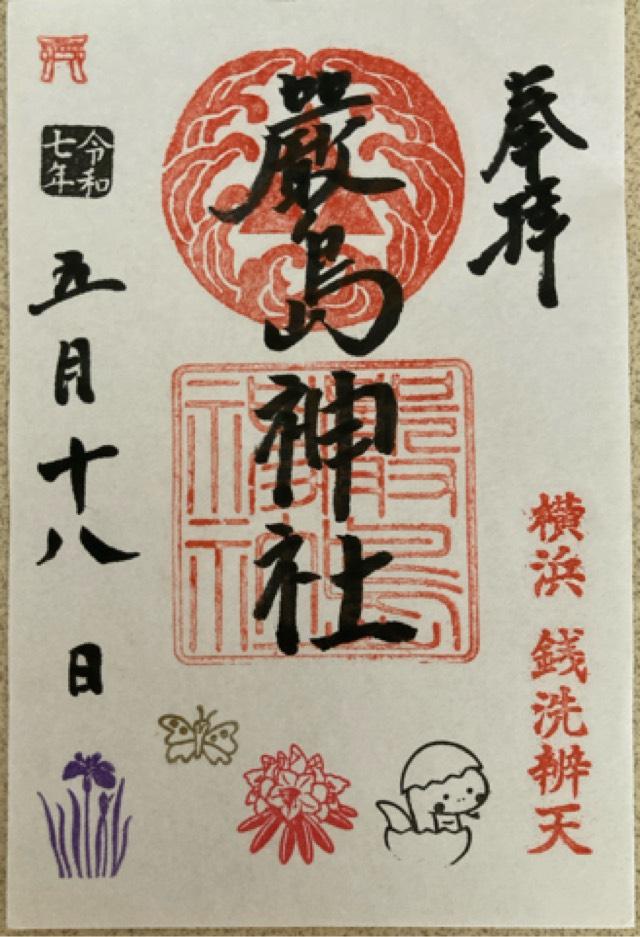 奉拝
横浜 銭洗辨天
嚴島神社
嚴島神社
令和七年
五月十八日